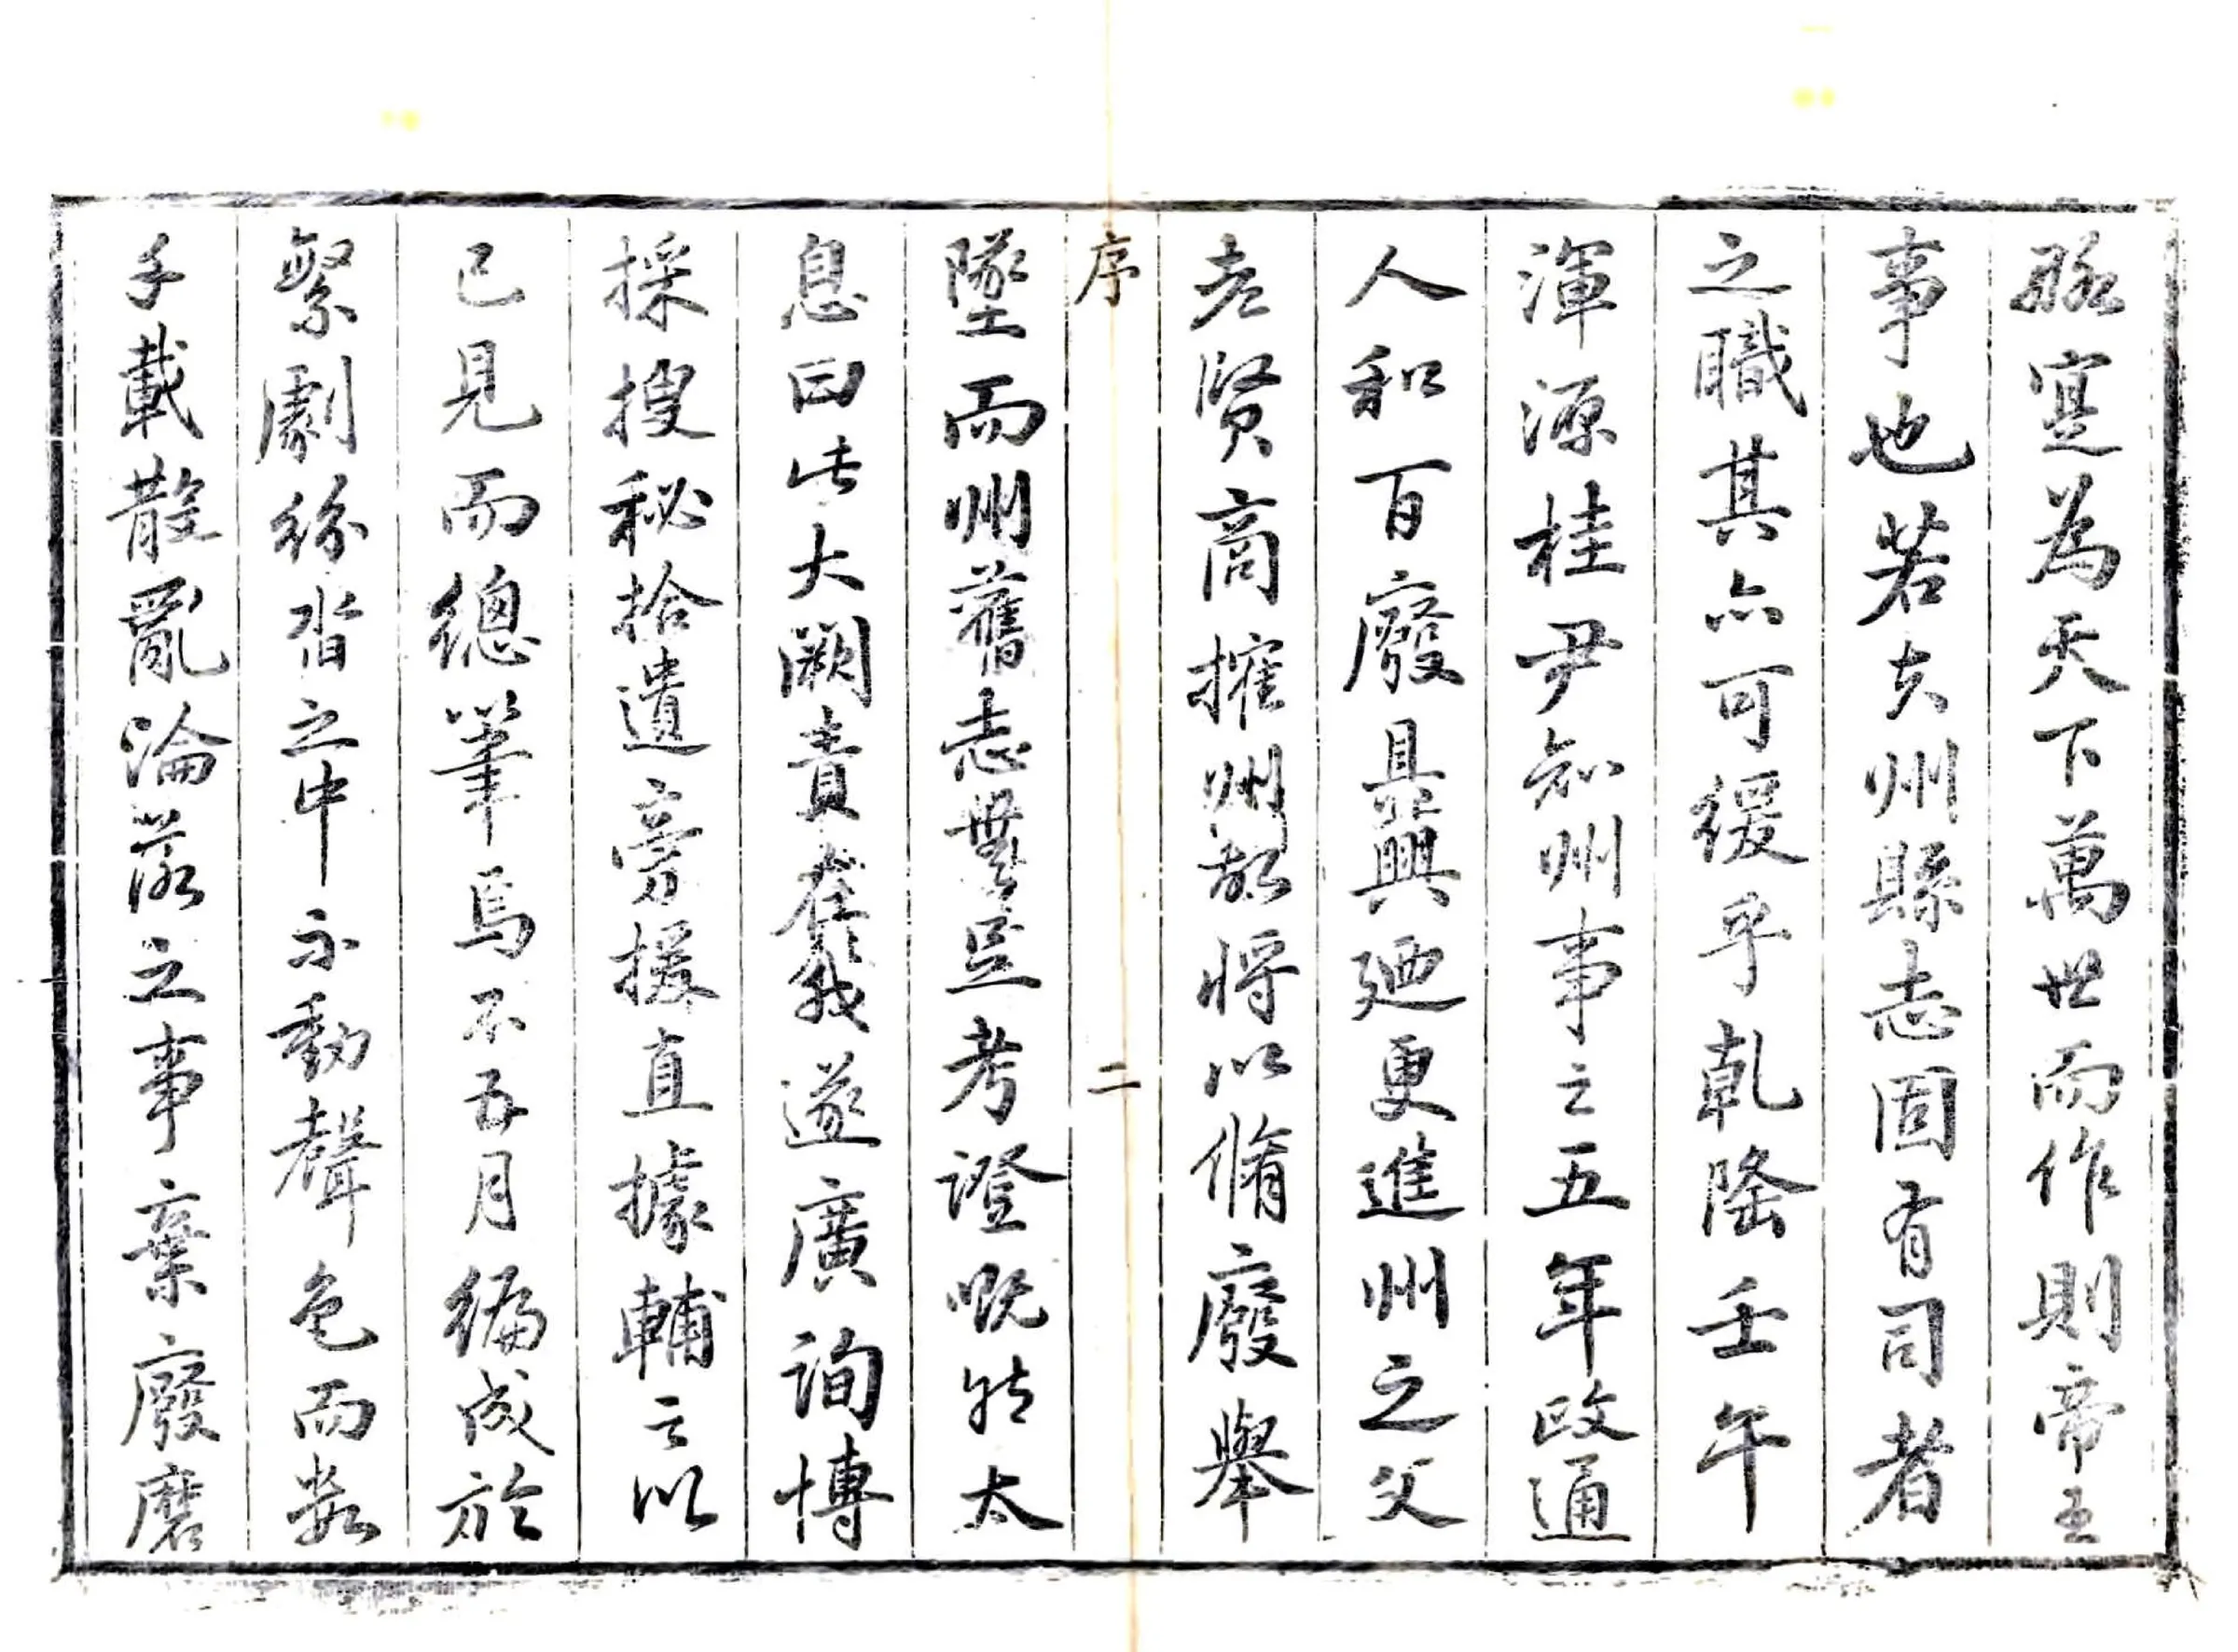 寔為天下萬世而作則帝王
事也若夫州縣志固有司者
之職其亦可緩乎乾隆壬午
渾源桂尹知州事之五年政通
人和百廢具興廼更進州之父
老賢商搉州故將以脩廢舉
序 二
墜而州舊志無足考證嘅然太
息曰此大闕責在我遂廣詢博
採搜秘拾遺旁援直據輔之以
已見而總筆焉不五月編成於
繁劇紛沓之中不動聲色而數
千載散亂淪落之事棄廢磨